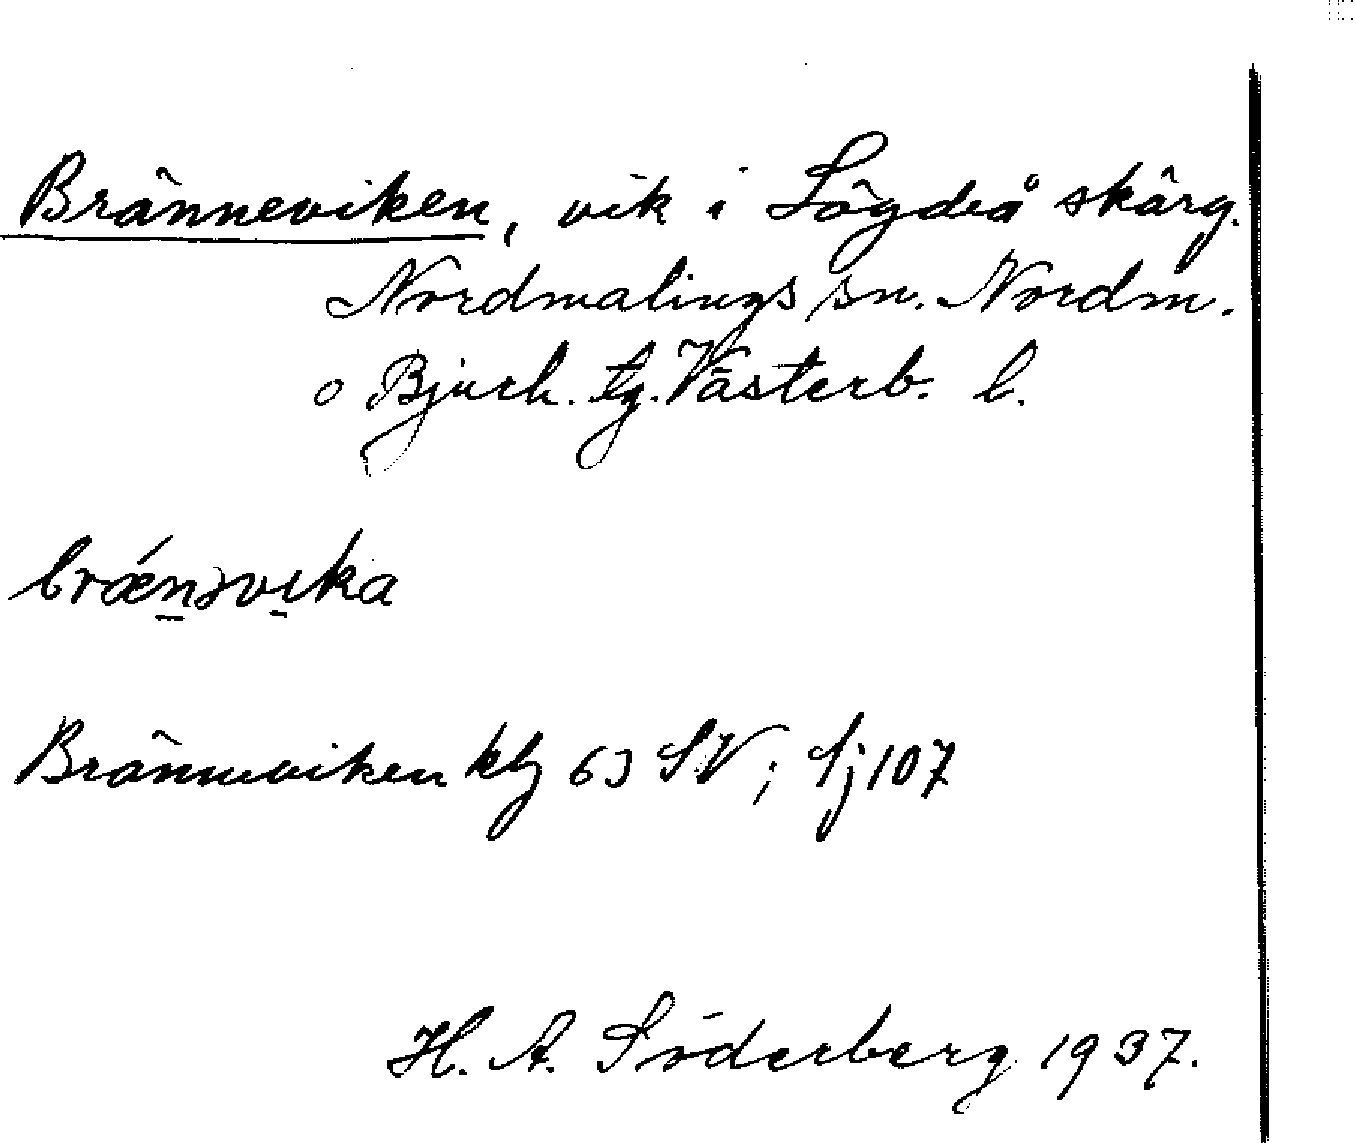 Bränneviken, vik i Lögdeå skärg.
Nordmalings sn. Nordm.
o Bjurh. tg. Västerb. l.
bræ´n̲əvi̲ka
Bränneviken kbl 63 SV; Sj 107
H. A. Söderberg 1937.